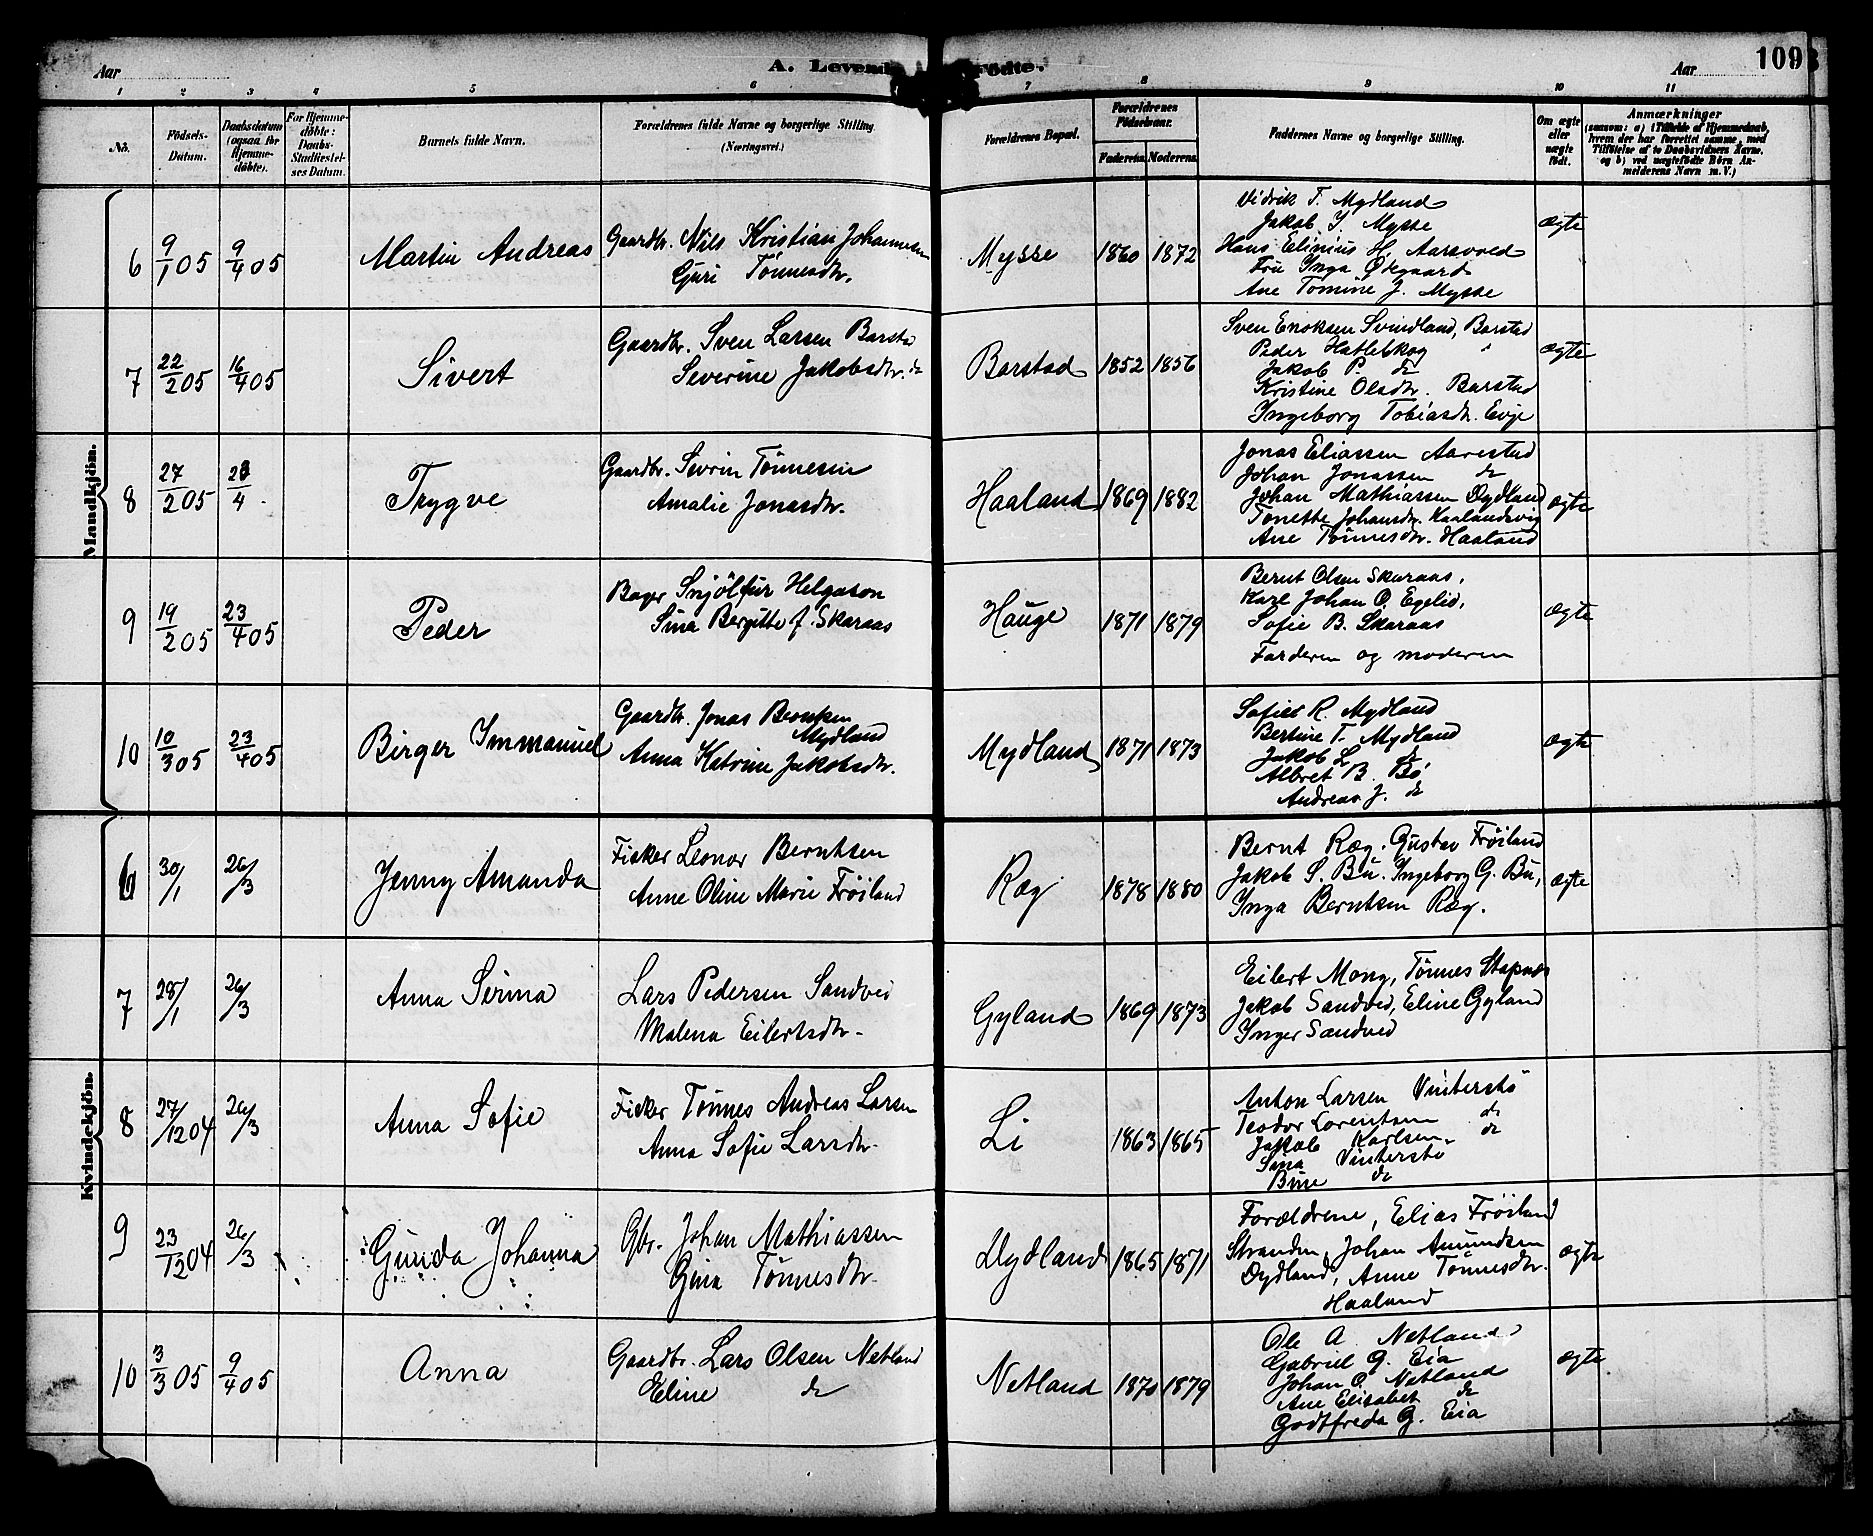 Aar
A. Levende Fødte.
Aar
109
1 2 3 4 5 6 7 8 9 10 11
No.
Födsels-
Datum.
Daabsdatum
(ogsaa for
Hjemme-
döbte).
For Hjemme-
döbte:
Daabs-
Stadfæstel-
ses Datum.
Barnets fulde Navn.
Forældrenes fulde Navne og borgerlige Stilling
(Næringsvei.)
Forældrenes Bopæl.
Forældrenes
Födselsaar.
Faderens. Moderens.
Faddernes Navne og borgerlige Stilling.
Om ægte
eller
uægte
födt.
Anmærkninger
(saasom: a) i Tilfælde af Hjemmedaab,
hvem der har forrettet samme, med
Tilföielse af to Daabsvidners Navne.
og b) ved uægtefödte Börn An-
melderens Navn m. V.)
Mandkjön.
6 9/1 05 9/4 05 Martin Andreas
Gaardbr. Nils Kristian Johannesen
Guri Tönnesdtr.
Mysse 1860 1872
Vidrik T. Mydland
Jakob J. Mysse
Hans Elinius H. Aarsvold
Fru Inga Økgaard
Ane Tomine J. Mysse
ægte
7 22/2 05 16/4 05 Sivert
Gaardbr. Sven Larsen Barstad
Severine Jakobsdtr. do
Barstad 1852 1856
Sven Enoksen Svindland, Barstad
Peder Hatleskog "
Jakob P. do
Kristine Olsdtr. Barstad
Ingeborg Tobiasdtr. Evje
ægte
8 27/2 05 23/4 Trygve
Gaardbr. Sevrin Tönnesen
Amalie Jonasdtr.
Haaland 1869 1882
Jonas Eliassen Aarestad
Johan Jonassen do
Johan Mathiassen Dydland
Tonette Johansdtr. Haalandsvig
Ane Tönnesdtr. Haaland
ægte
9 19/2 05 23/4 05 Peder
Bager Snjölfur Helgason
Sina Bergitte f. Skaraas
Hauge 1871 1879
Bernt Olsen Skaraas,
Karl Johan O. Egelid,
Sofie B. Skaraas
Farderen og moderen
ægte
10 10/3 05 23/4 05 Birger Immanuel
Gaardbr. Jonas Berntsen
Mydland
Anna Katrine Jakobsdtr.
Mydland 1871 1873
Sofies R. Mydland
Bertine T. Mydland
Jakob L. do
Albret B. Bö
Andreas J. do
ægte
Kvindekjön.
6 30/1 26/3 Jenny Amanda
Fisker Leonor Berntsen
Anne Oline Marie Fröiland
Ræg 1878 1880
Bernt Ræg. Gustav Fröiland
Jakob S. Bu. Ingeborg G. Bu,
Inga Berntsen Ræg.
ægte
7 28/1 26/3 Anna Serina
Lars Pedersen Sandved
Malena Eilertsdtr.
Gyland 1869 1873
Eilert Mong, Tönnes Stapnes
Jakob Sandved, Eline Gyland
Inger Sandved
8 27/12 04 26/3 Anna Sofie
Fisker Tönnes Andreas Larsen
Anna Sofie Larsdtr.
Li 1863 1865
Anton Larsen Vinterstö
Teodor Lorentsen do
Jakob Karlsen do
Sina Vinterstö
Bine do
9 23/12 04 26/3 Gunda Johanna
Gbr. Johan Mathiassen
Gina Tönnesdtr.
Dydland 1865 1871
Forældrene, Elias Fröiland
Stranden, Johan Amundsen
Dydland, Anne Tönnesdtr.
Haaland
ægte
10 3/3 05 9/4 05 Anna
Gaardbr. Lars Olsen Netland
Eline do
Netland 1870 1879
Ole A. Netland
Gabriel G. Eia
Johan O. Netland
Ane Elisabet do
Godtfreda G. Eia
ægte